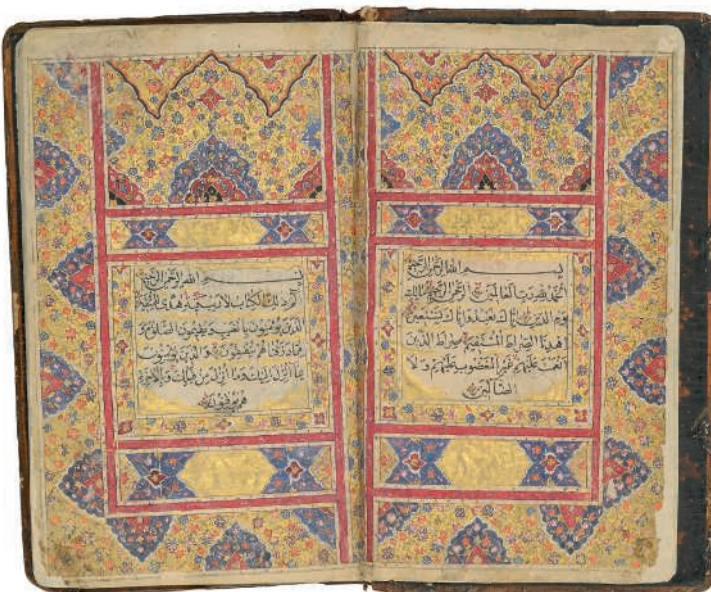 بسم الله الرحمن الرحيم
الحمد لله رب العالمين الرحمن الرحيم مالك
يوم الدين اياك نعبد واياك نستعين
اهدنا الصراط المستقيم صراط الذين
انعمت عليهم غير المغضوب عليهم ولا
الضالين
بسم الله الرحمن الرحيم
الم ذلك الكتاب لا ريب فيه هدى للمتقين
الذين يؤمنون بالغيب ويقيمون الصلوة و
مما رزقناهم ينفقون والذين يؤمنون
بما انزل اليك وما انزل من قبلك وبالاخرة
هم يوقنون